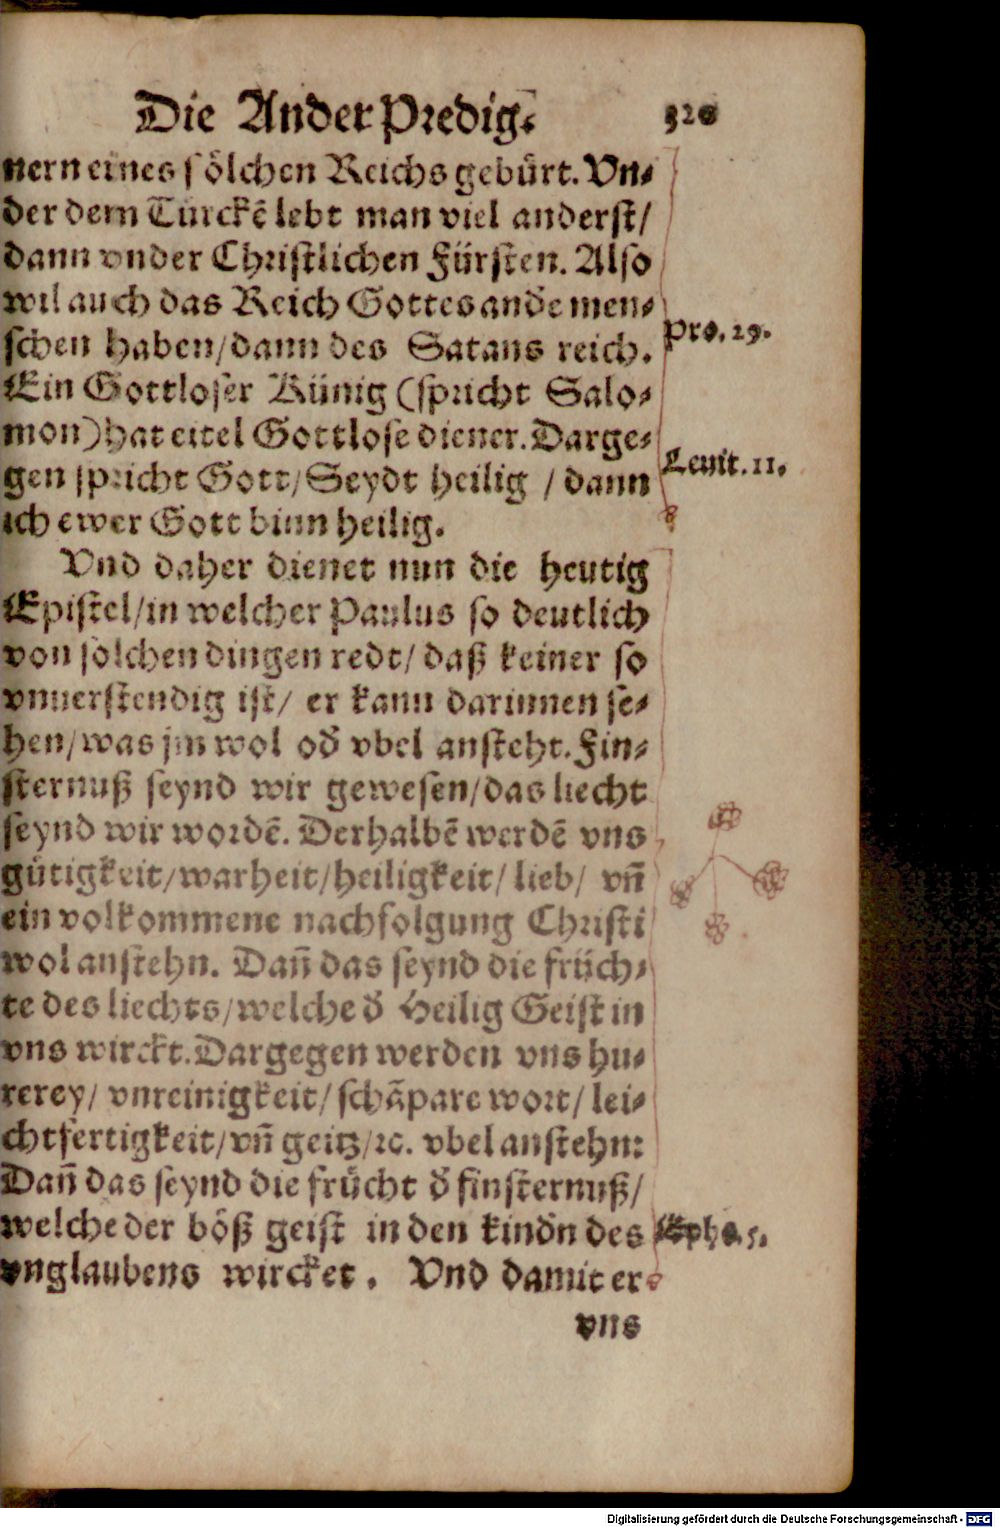 Die Ander Predig. 320
nern eines sölchen Reichs gebürt. Vn-
der dem Türckē lebt man viel anderst/
dann vnder Christlichen Fürsten. Also
wil auch das Reich Gottes andě men-
schen haben/dann des Satans reich.
Pro. 29.
Ein Gottloser Künig (spricht Salo-
mon) hat eitel Gottlose diener. Darge-
gen spricht Gott/Seydt heilig / dann
Leuit. 11.
ich ewer Gott binn heilig.
Vnd daher dienet nun die heutig
Epistel/in welcher Paulus so deutlich
von solchen dingen redt/ daß keiner so
vnuerstendig ist/ er kann darinnen se-
hen/was jm wol oď vbel ansteht. Fin-
sternuß seynd wir gewesen/das liecht
seynd wir wordē. Derhalbē werdē vns
gütigkeit/warheit/heiligkeit/ lieb/ vñ
ein volkommene nachfolgung Christi
wol anstehn. Dañ das seynd die früch-
te des liechts/welche ď Heilig Geist in
vns wirckt. Dargegen werden vns hu-
rerey/ vnreinigkeit/schāpare wort/ lei-
chtfertigkeit/vñ geitz/ꝛc. vbel anstehn:
Dañ das seynd die frücht ď finsternuß/
welche der böß geist in den kinďn des
Ephe. 5.
vnglaubens wircket. Vnd damit er
vns
Digitalisierung gefördert durch die Deutsche Forschungsgemeinschaft - DFG